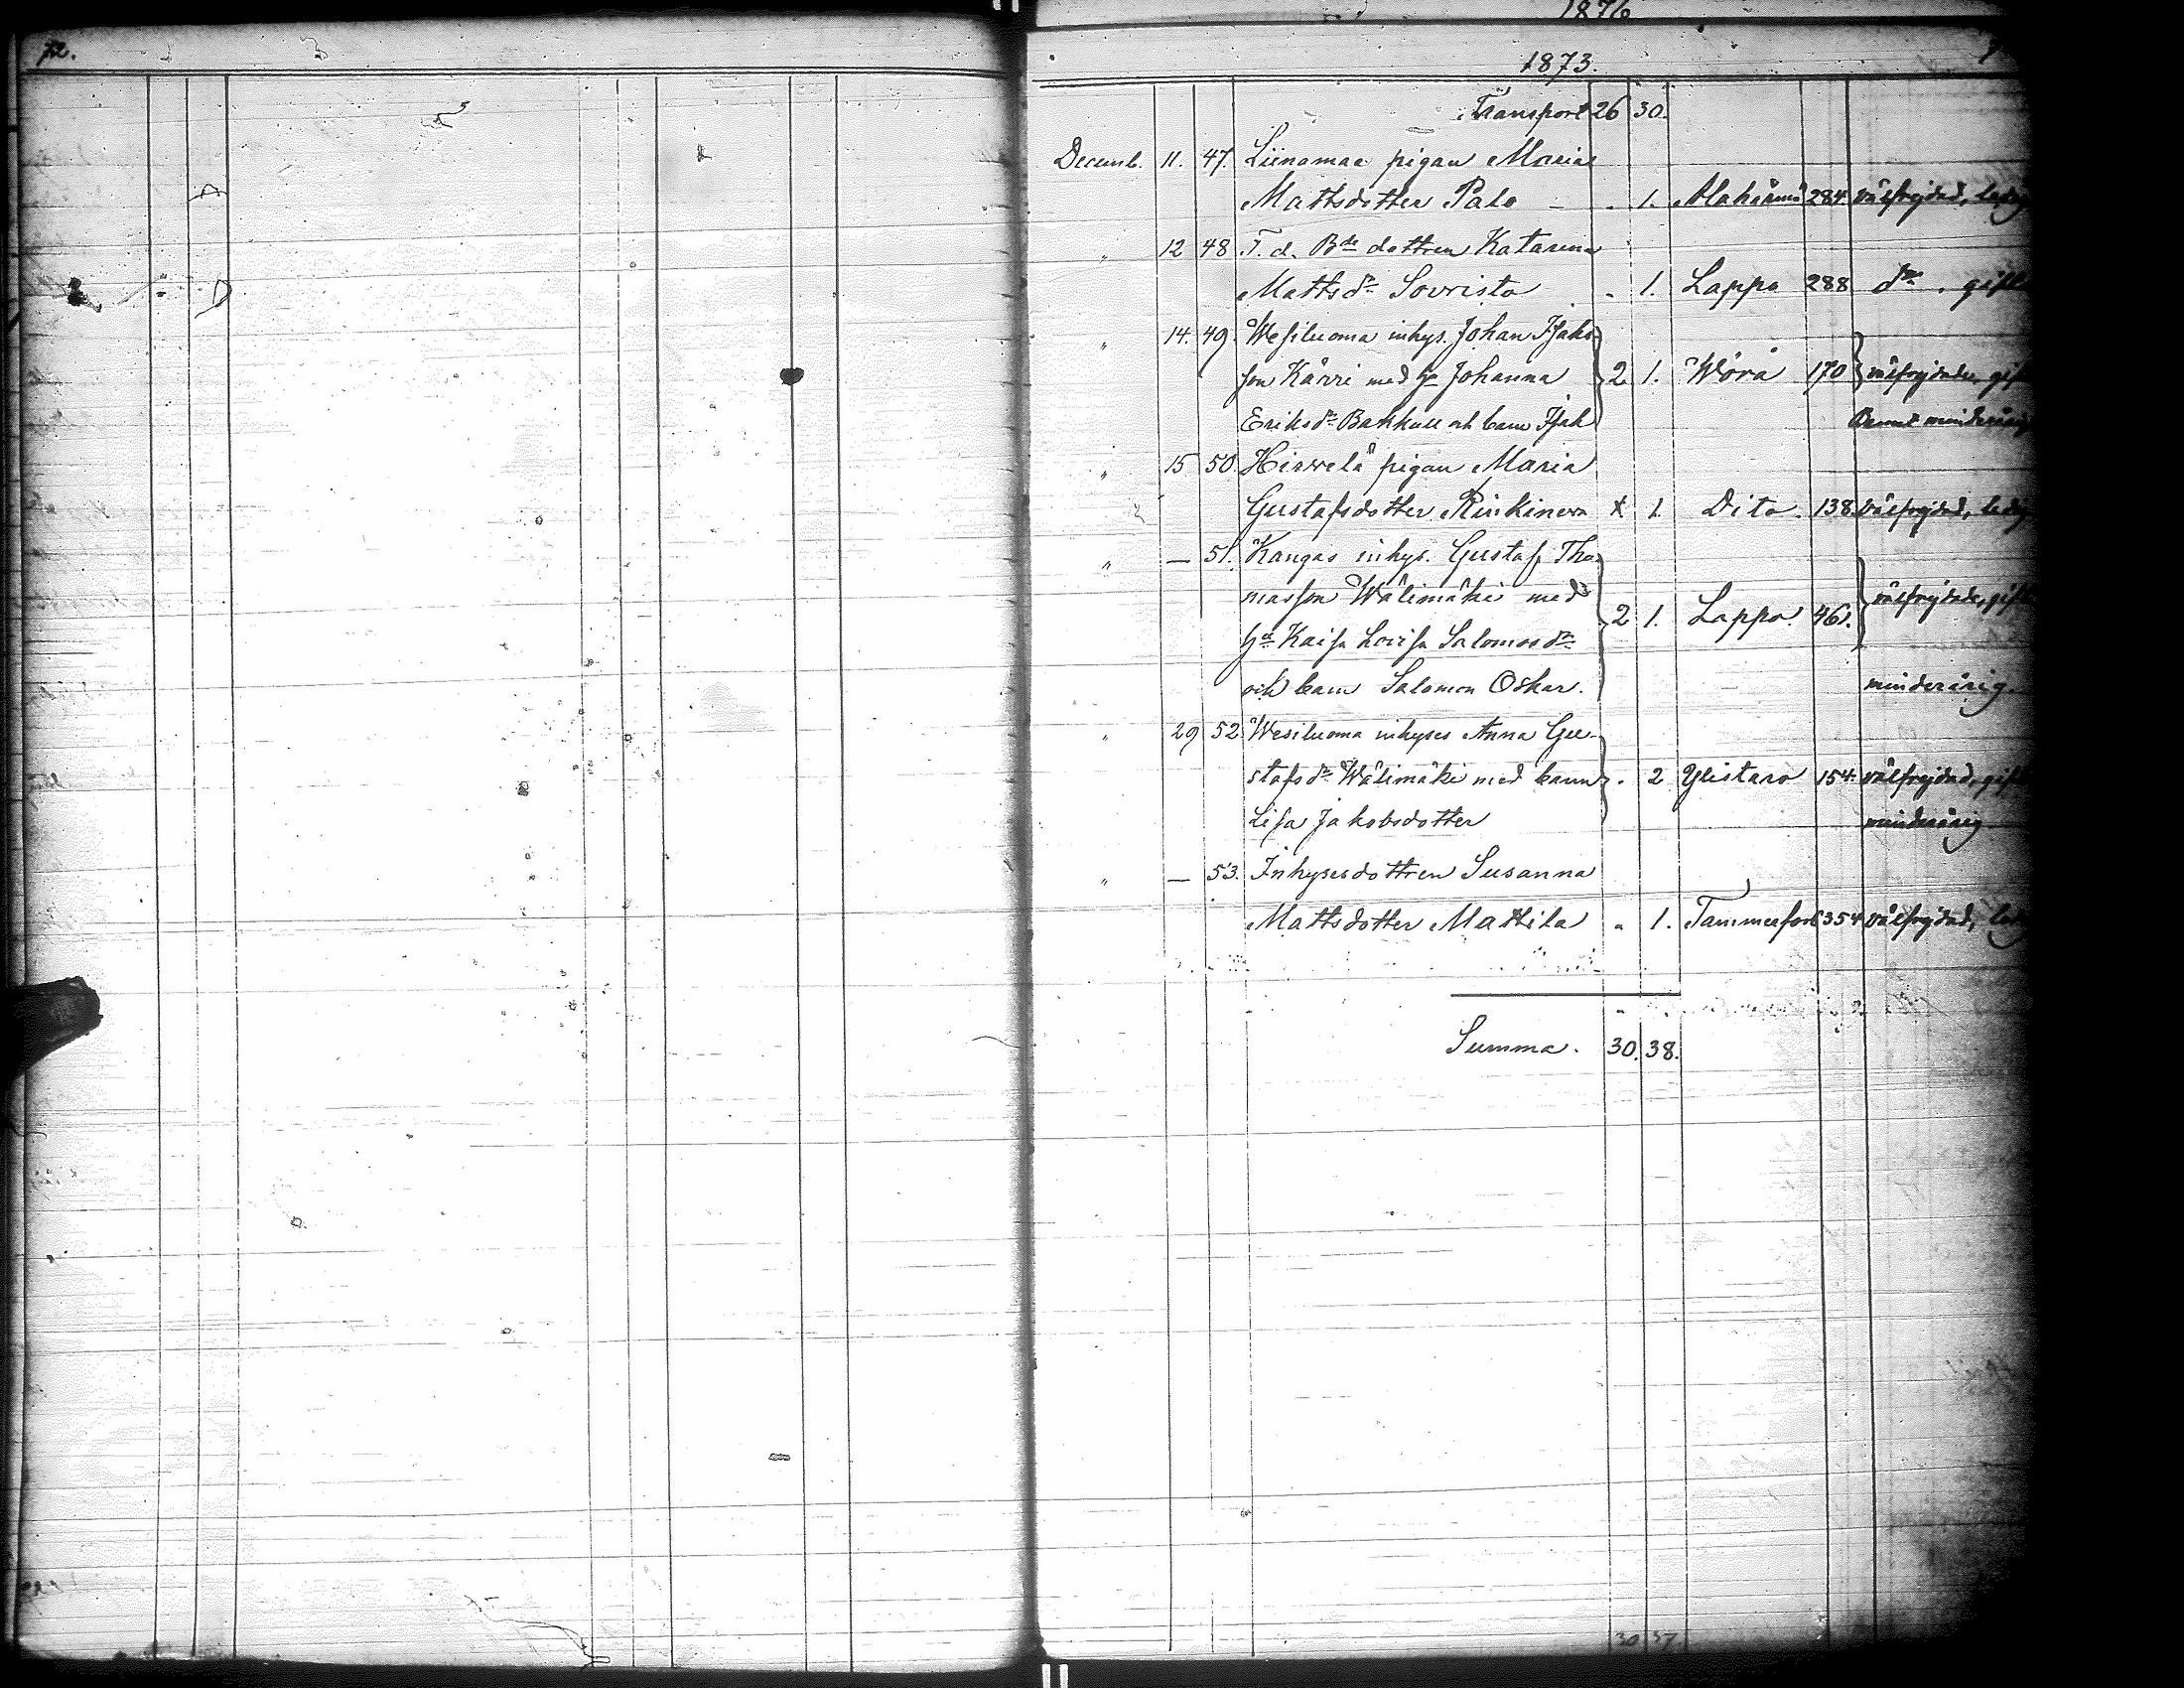 72.
1876
1873.
Transport 26 30.
Decemb. 11. 47. Liinamaa pigan Maria
Mattsdotter Palo — " 1. Alahärmä 284 välfrejdad, ledig
" 12 48 F. d. Bde dottren Katarina
Mattsdr Sovrista " 1. Lappo 288 do. gift
" 14. 49. Wesiluoma inhys. Johan Isaks-
son Kärri med h. Johanna 2 1. Wörå 170 välfrejdade, gifte
Eriksdr Backhull och barn Isak Barnet minderårig
" 15 50. Hirvelä pigan Maria
Gustafsdotter Rinkineva x 1. Dito. 138 välfrejdad, ledig
" — 51. Kangas inhys. Gustaf Tho-
masson Wälimäki med välfrejdade, gifte
h. Kaisa Lovisa Salomosdr 2 1. Lappo. 461.
och barn Salomon Oskar. minderårig.
" 29 52 Wesiluoma inhyses Anna Gu-
stafsdr Wälimäki med barn " 2 Ylistaro 154. välfrejdad, gift
Lisa Jakobsdotter minderårig
" — 53. Inhysesdottren Susanna
Mattsdotter Mattila " 1. Tammerfors 354 välfrejdad,
Summa. 30. 38.
30 37